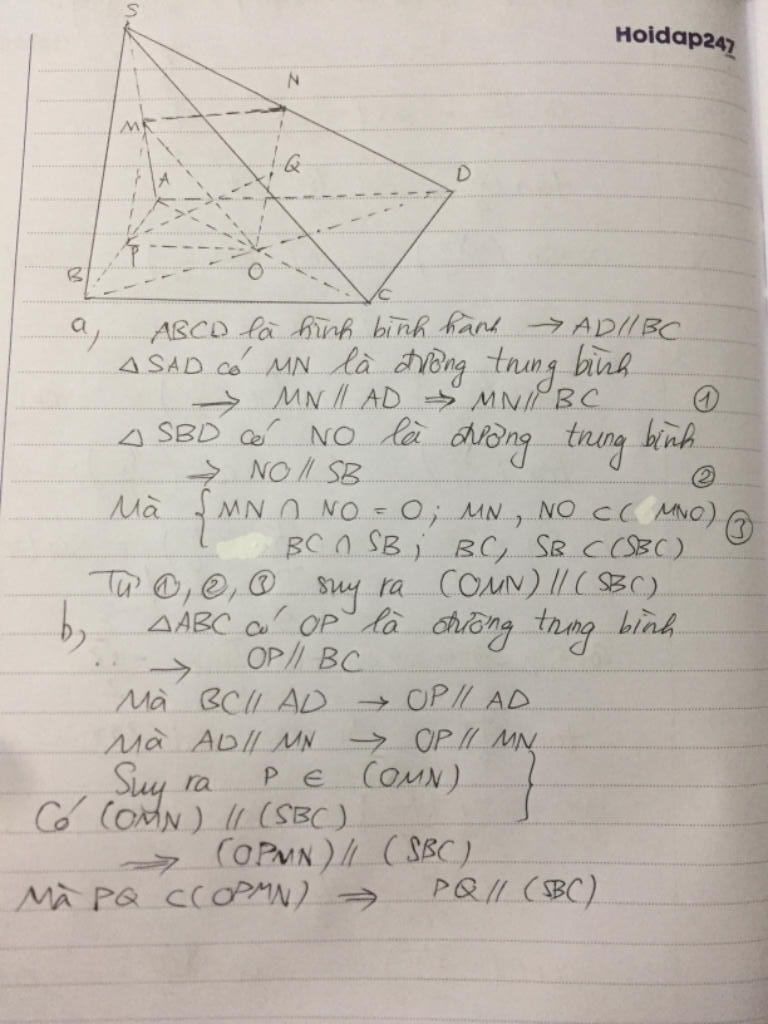 Hoidap247
S
N
M
Q
A
D
P
B
O
C
a, ABCD là hình bình hành → AD // BC
△SAD có MN là đường trung bình
→ MN // AD ⇒ MN // BC ①
△ SBD có NO là đường trung bình
⇒ NO // SB ②
Mà { MN ∩ NO = O; MN, NO ⊂ ( MNO) ③
BC ∩ SB; BC, SB ⊂ (SBC)
Từ ①, ②, ③ suy ra (OMN) // (SBC)
b, △ABC có OP là đường trung bình
.. → OP // BC
Mà BC // AD → OP // AD
Mà AD // MN → OP // MN
Suy ra P ∈ (OMN) }
Có (OMN) // (SBC)
⇒ (OPMN) // (SBC)
Mà PQ ⊂ (OPMN) ⇒ PQ // (SBC)